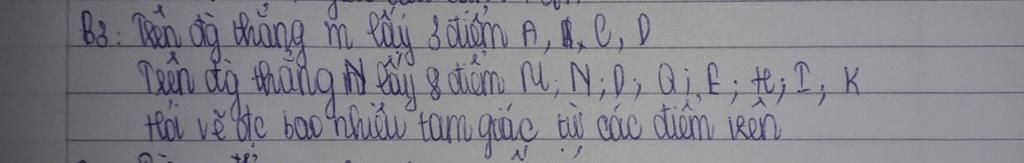 B3: Trên đg thẳng m lấy 3 điểm A, C, D
Trên đg thẳng N lấy 8 điểm M; N; D; Q; E; H; I; K
Hỏi vẽ đc bao nhiêu tam giác từ các điểm trên